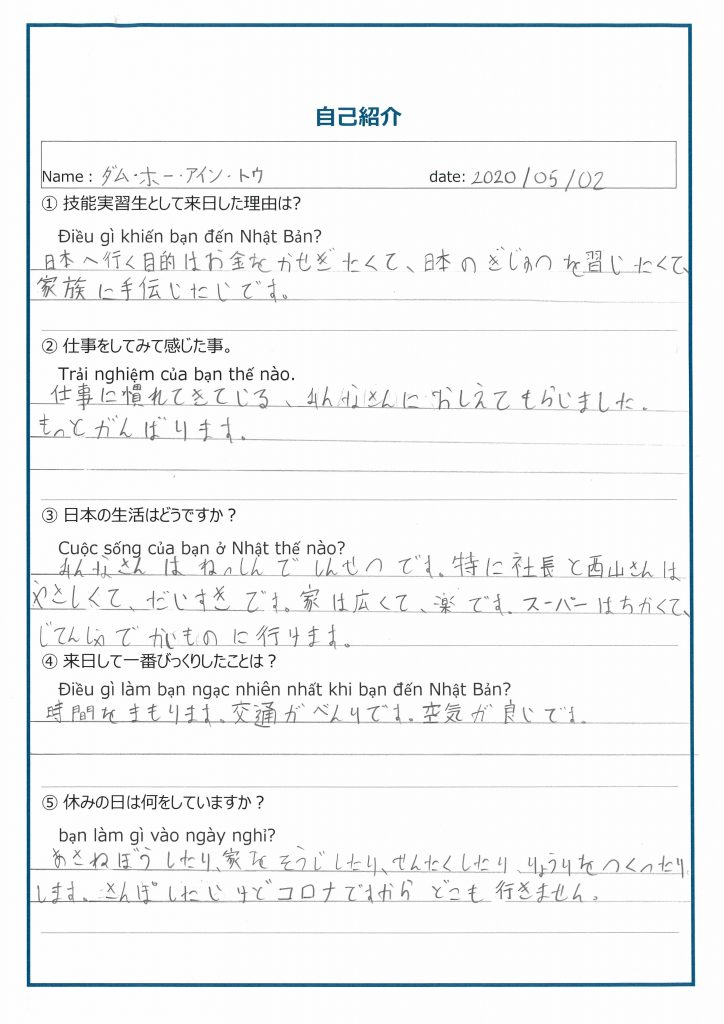 自己紹介
Name : ダム・ホー・アイン・トウ date: 2020/05/02
① 技能実習生として来日した理由は?
Điều gì khiến bạn đến Nhật Bản?
日本へ行く目的はお金をかせぎたくて、日本のぎじゅつを習いたくて、
家族に手伝いたいです。
② 仕事をしてみて感じた事。
Trải nghiệm của bạn thế nào.
仕事に慣れてきている、みんなさんにおしえてもらいました。
もっとがんばります。
③ 日本の生活はどうですか？
Cuộc sống của bạn ở Nhật thế nào?
みんなさんはねっしんでしんせつです。特に社長と西山さんは
やさしくて、だいすきです。家は広くて、楽です。スーパーはちかくて、
じてんしゃでかいものに行けます。
④ 来日して一番びっくりしたことは？
Điều gì làm bạn ngạc nhiên nhất khi bạn đến Nhật Bản?
時間をまもります。交通がべんりです。空気が良いです。
⑤ 休みの日は何をしていますか？
bạn làm gì vào ngày nghỉ?
あさねぼうしたり、家をそうじしたり、せんたくしたり、りょうりをつくったり
します。さんぽしたいけどコロナですからどこも行きません。